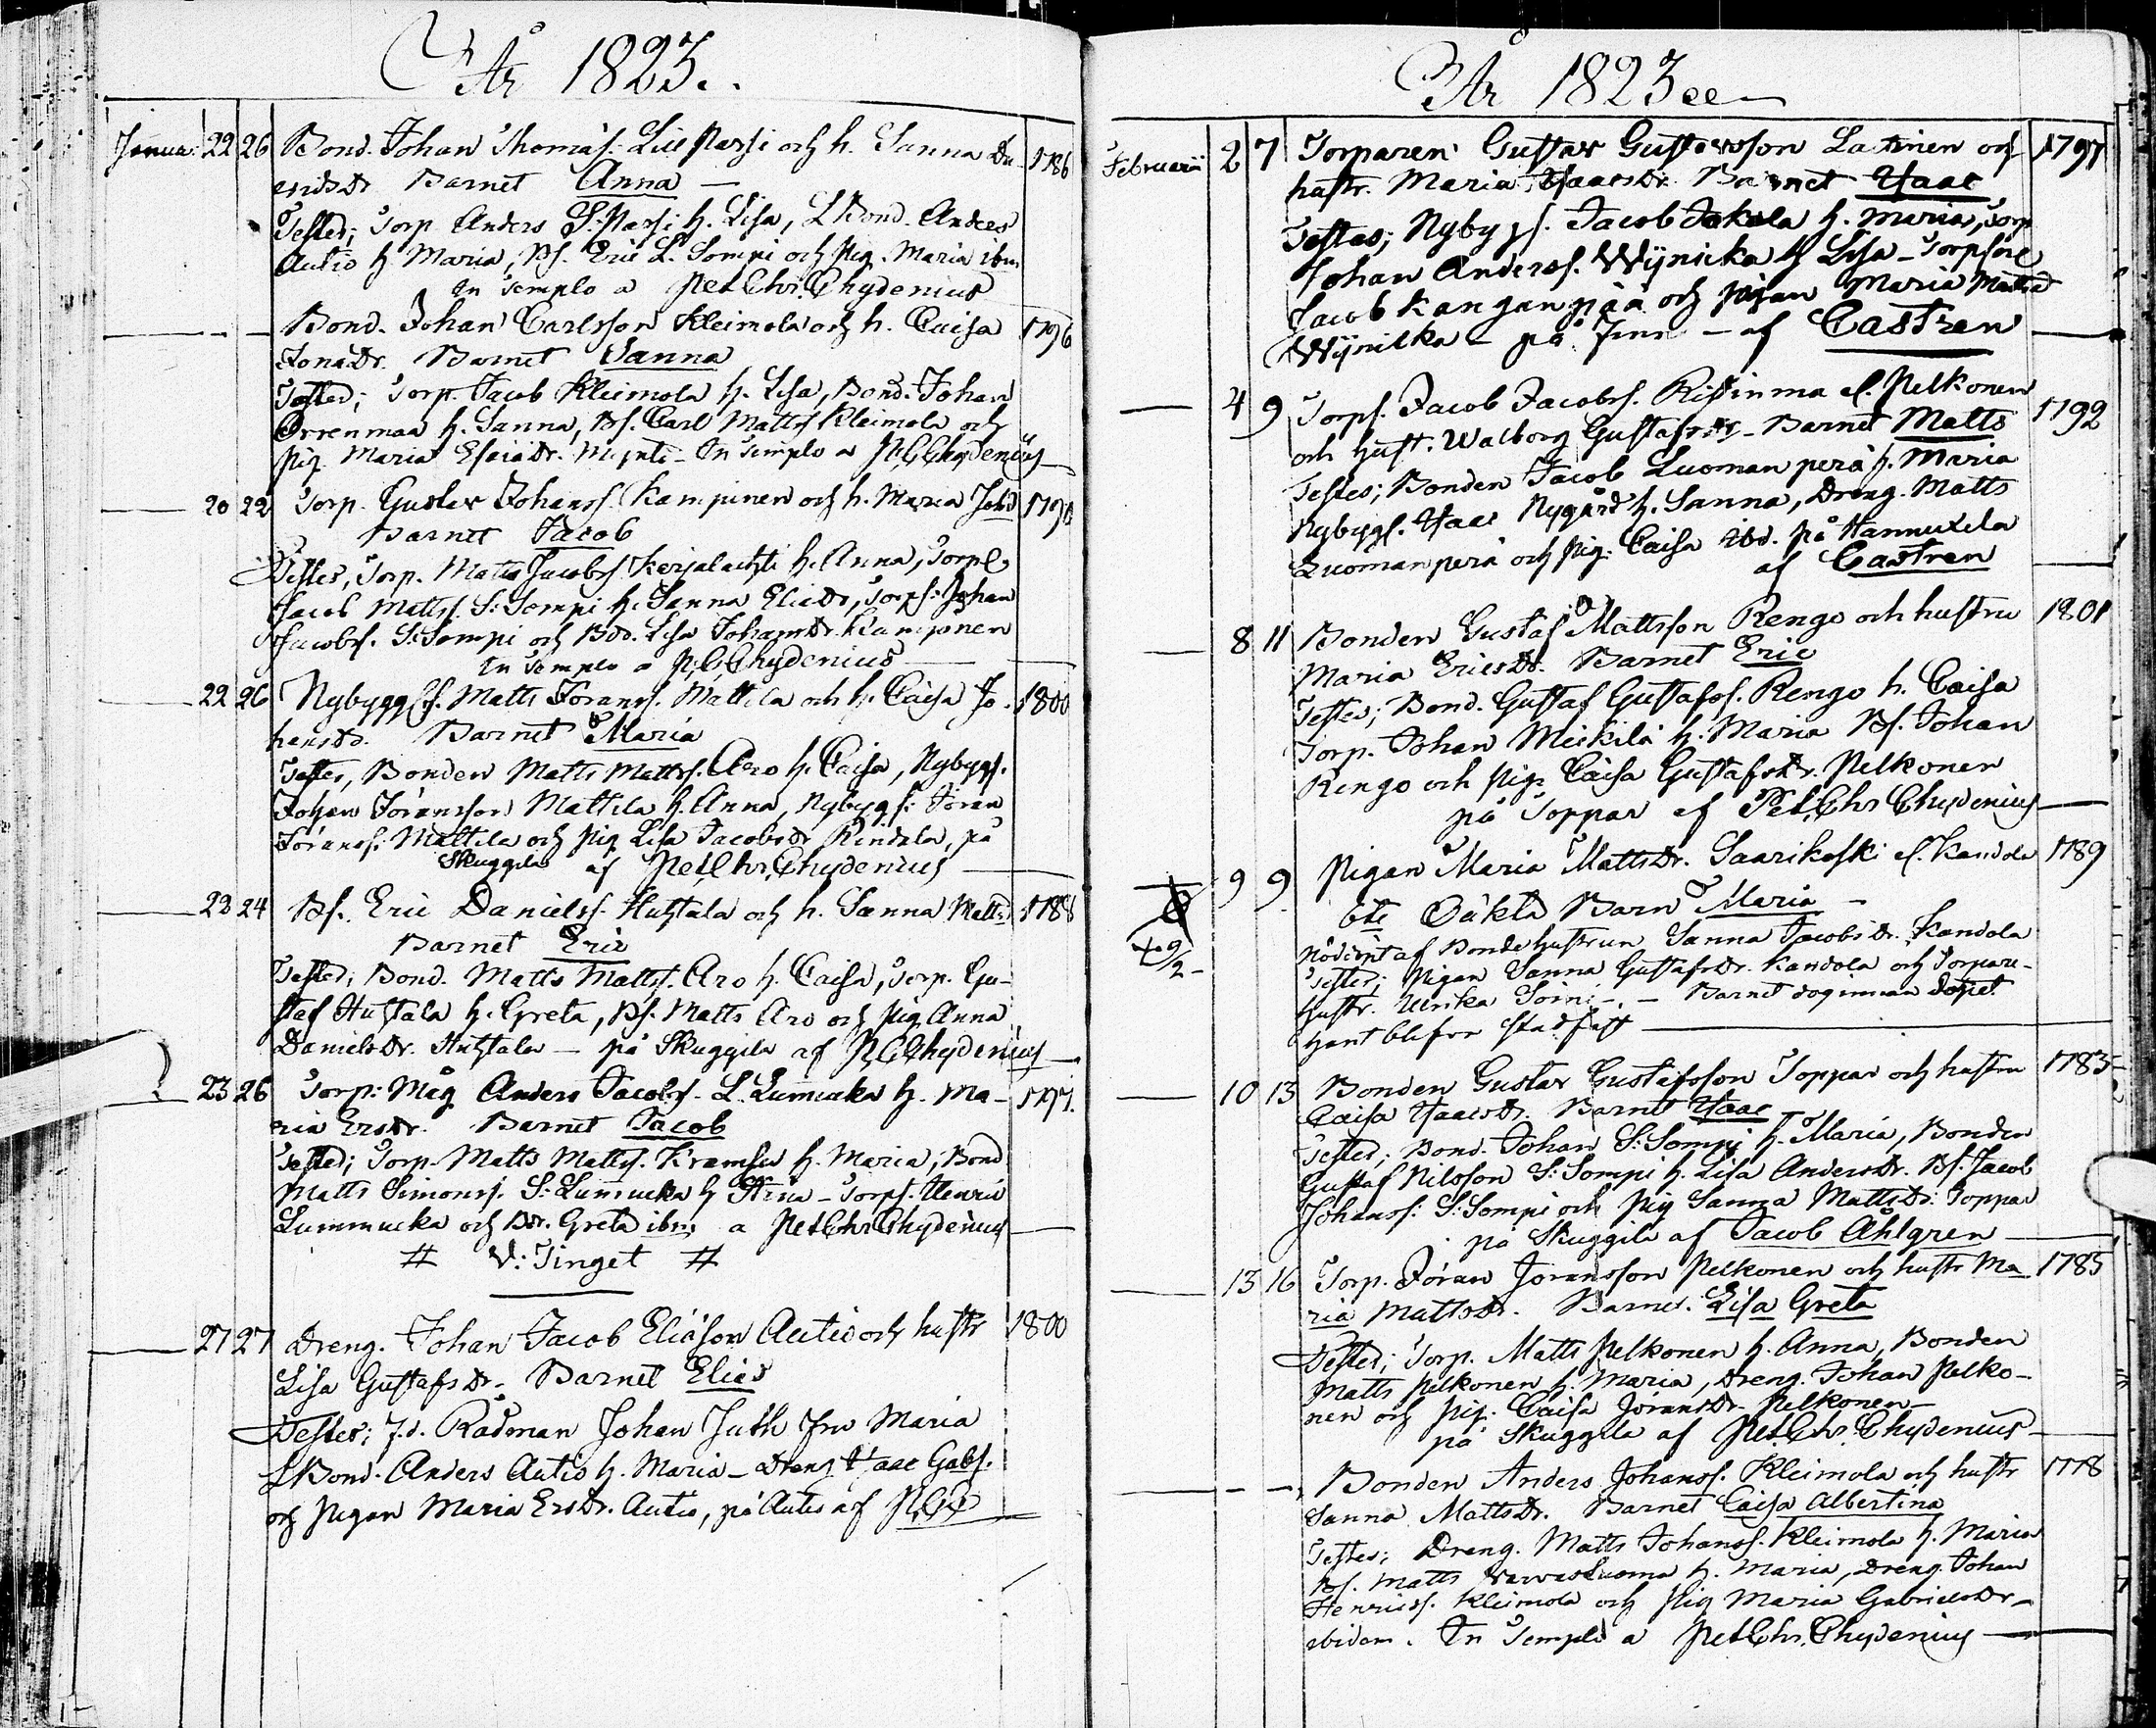 År 1823.
Janua: 22 26 Bond. Johan Thomas. Lill Passi och h. Sanna Da- 1786
vidsDr. Barnet Anna —
Testes; Torp. Anders S: Passi h. Lisa, L Bond. Anders
Autio h. Maria, Bs. Eric L. Sompi och Pig. Maria ibm
In Templo a Pet Chr. Chydenius
— — Bond. Johan Carlsson Kleimola och h. Caisa 1796
JonaDr. Barnet Sanna
Testes; Torp. Jacob Kleimola h. Lisa, Bond. Johan
Orrenmaa h. Sanna, Bs. Carl Matts. Kleimola och
Pig. Maria EsaiaDr. — In Templo a P. C. Chydenius
— 20 22 Torp. Gustav Johanss. Kamppinen och h. Maria
Barnet Jacob
Testes, Torp. Matts Jacobss. Kerjalachti h. Anna, Torp.
Jacob Mattss. S: Sompi h. Sanna EliaDr, Torps: Johan
Jacobss. S: Sompi och BDr. Lisa JohansDr. Kamppinen
In Templo a P. C. Chydenius
— 22 26 Nybyggs. Matts Göranss. Mattila och h. Caisa Jo- 1800
hansDr. Barnet Maria
Testes, Bonden Matts Mattss. Aro h. Caisa, Nybyggs.
Johan Göransson Mattila h. Anna, Nybyggs: Göran
Göranss. Mattila och Pig Lisa JacobsDr Rindala, på
Skuggila af Pet. Chr. Chydenius
— 23 24 Bs. Eric Danielss. Huhtala och h. Sanna MattsD 1788
Barnet Eric
Testes; Bond. Matts Mattss. Aro h. Caisa, Torp. Gu-
staf Huhtala h. Greta, Bs. Matts Aro och Pig Anna
DanielsDr. Huhtala — på Skuggila af P. C. Chydenius
— 23 26 Torp: Måg Anders Jacobs. L. Lummukka h. Ma- 1797.
ria ErsDr. Barnet Jacob
Testes; Torp. Matts Mattss. Kramsu h. Maria; Bond
Matts Simonss. S: Lummukka h Stina — Torps. Henric
Lummucka och BDr. Greta ibm; a Pet Chr Chydenius
# V: Tinget #
— 27 27 Dreng. Johan Jacob Eliason Autio och hustr 1800
Lisa GustafsDr. Barnet Elias
Testes; f.d. Rådman Johan Juth fru Maria
L Bond. Anders Autio h. Maria — Dreng Isaac Gabs.
och Pigan Maria ErsDr. Autio, på Autio af P. C. C
År 1823
Februarii 2 7 Torparen Gustav Gustavsson Latinen och 1797
hustr. Maria IsaacsDr. Barnet Isaac
Testes; Nybyggs. Jacob Jokela h. Maria, Torp
Johan Anderss. Wijnicka h Lisa — Torpsone
Jacob Kanganpää och Pigan Maria
Wijnikka — på — af Castren
— 4 9 Torps. Jacob Jacobss. Ristinma el. Pelkonen 1792
och hust. Walborg GustafsDr — Barnet Matts
Testes; Bonden Jacob Luomanperä h. Maria
Nybyggs. Isaac Nygård h. Sanna, Dreng. Matts
Luomanperä och Pig: Caisa ibd. på Hannuxela
af Castren
— 8 11 Bonden Gustaf Mattsson Rengo och hustru 1801
Maria EricsDr. Barnet Eric
Testes; Bond. Gustaf Gustafss. Rengo h. Caisa
Torp. Johan Mickilä h. Maria Bs. Johan
Rengo och Pig. Caisa GustafsDr. Pelkonen
på Toppar af Pet. Chr Chydenius
— 9 9 Pigan Maria MattsDr. Saarikoski el. Kandola 1789
6te Oäkta Barn Maria —
+ 9/2 — Nöddöpt af Bondehustrun Sanna JacobsDr. Kandola
Testes; Pigan Sanna GustafsDr. Kandola och Torpare-
hustr. Ulrika — Barnet dog innan dopet
hant blifva stadfäst
— 10 13 Bonden Gustav Gustafsson Toppar och hustru 1783
Caisa IsaacsDr. Barnet Isaac
Testes; Bond. Johan S: Sompi h. Maria, Bonden
Gustaf Nilsson S: Sompi h. Lisa AndersDr. Bs. Jacob
Johanss: S: Sompi och Pig Sanna MattsDr: Toppar
på Skuggila af Jacob Ahlgren
— 13 16 Torp. Göran Göransson Pelkonen och hustr Ma- 1785
ria MattsDr. Barnet. Lisa Greta
Testes; Torp. Matts Pelkonen h. Anna, Bonden
Matts Pelkonen h. Maria, Dreng. Johan Pelko-
nen och Pig. Caisa GöransDr. Pelkonen —
på Skuggila af Pet. Chr. Chydenius
— — — Bonden Anders Johanss. Kleimola och hustr 1778
Sanna MattsDr. Barnet Caisa Albertina
Testes; Dreng. Matts Johanss. Kleimola h. Maria
Bs. Matts Varvasluoma h. Maria, Dreng Johan
Henricss. Kleimola och Pig Maria GabrielsDr —
ibidem. In Templo a Pet Chr. Chydenius —